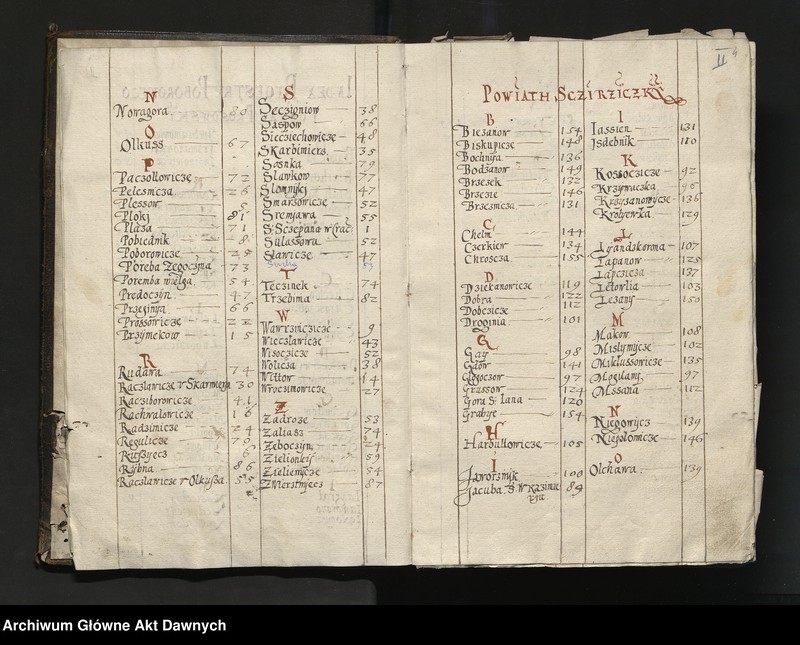 N
Nowagora 80
O
Olkuss 67
P
Paczołtowicze 72
Pelesnicza 26
Plessow 5
Płokj 81
Płaza 71
Pobiednik 8
Poborowicze 25
Poręba Zegoczyna 73
Poremba wielga 54
Predoczyn 47
Przeginya 66
Prossowicze 22
Przymekow 15
R
Rudawa 74
Raczlawicze v Skarmierza 30
Raczıborowicze 41
Rachwalowicze 16
Radzimicze 24
Regulicze 70
Russyecz 6
Rybna 86
Raczlawicze v Olkusza 55
S
Seczigniow 38
Saspow 66
Siecziechowicze 48
Skarbimierz 35
Sosnka 79
Slawkow 77
Slomnikj 47
Smarzowicze 52
Sremjawa 55
S: Sczepana w Crac: 1
Sulassowa 52
Sławicze 47
T
Teczinek 74
Trzebinia 82
W
Wawrzinczicze 9
Wieczlawicze 43
Wisoczicze 52
Wolicza 38
Wittow 14
Wrocimowicze 27
Z
Zadroze 53
Zaliasz 74
Zeboczyn 24
Zielionkij 59
Zielienycze 54
Zwierzinjecz 87
Powiath Sczirziczkÿ
II
B
Bieżanow 154
Biskupicze 148
Bochnija 136
Bodzanow 149
Brzezek 132
Brzezie 146
Brzeznicza 131
C
Chelm 144
Czerkiew 134
Chroscza 155
D
Dziekanowicze 119
Dobra 122
Dobczicze 112
Droginia 101
G
Gaÿ 98
Gdow 141
Glogoczow 97
Grussow 124
Gora S: Iana 120
Grabye 154
H
Harbultowicze 105
I
Jaworznik 100
Jacuba S. W Kazimie
rzu 89
I
Iassien 131
Isdebnik 110
K
Kossoczicze 92
Krzywaczka 96
Krzyzanowycze 136
Krolyewka 129
L
Lyandzkorona 107
Lapanow 125
Lapczicza 137
Lętowlia 103
Lezany 150
M
Makow 108
Mislymycze 102
Miklussowicze 135
Mogilany 97
Mssana 112
N
Niegowycz 139
Niepolomicze 146
O
Olchawa 139
Archiwum Główne Akt Dawnych